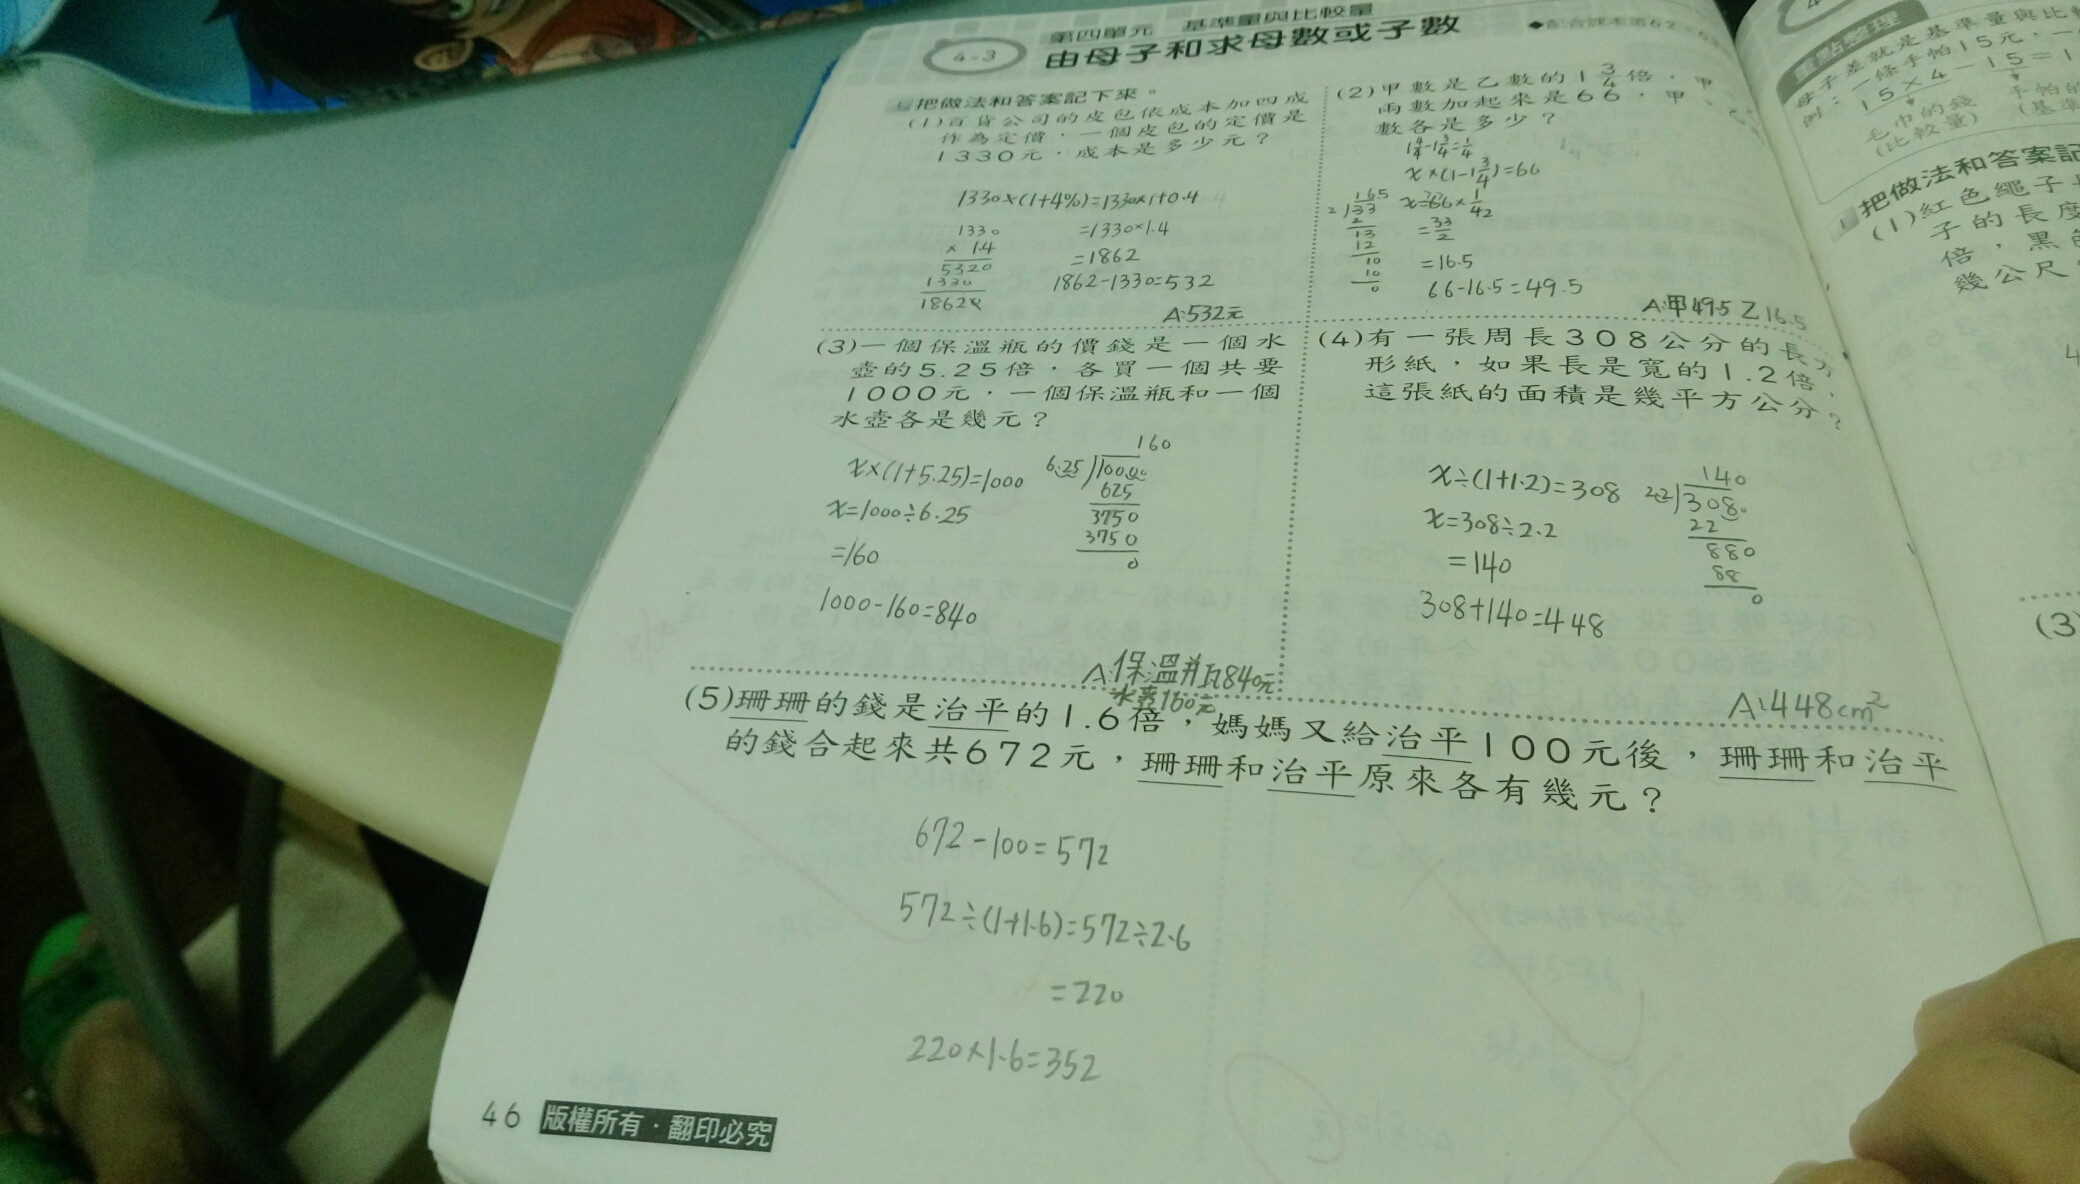 第四單元 基準量與比較量
4-3 由母子和求母數或子數
◆配合課本第62
把做法和答案記下來。
(1)百貨公司的皮包依成本加四成
作為定價，一個皮包的定價是
1330元，成本是多少元？
1330×(1+4%)=1330×1+0.4
=1330×1.4
=1862
1862-1330=532
1330
× 1.4
5320
1330
1862
A:532元
(2)甲數是乙數的1 3/4倍，甲、乙
兩數加起來是66，甲、乙
數各是多少？
1 4/4-1 3/4=1/4
x×(1-1 3/4)=66
=33/2
=16.5
66-16.5=49.5
16.5
2)33
2
13
12
10
10
0
A:甲49.5 乙16.5
(3)一個保溫瓶的價錢是一個水
壺的5.25倍，各買一個共要
1000元，一個保溫瓶和一個
水壺各是幾元？
x×(1+5.25)=1000
x=1000÷6.25
=160
1000-160=840
160
6.25)1000.00
625
3750
3750
0
A:保溫瓶840元
水壺160元
(4)有一張周長308公分的長方
形紙，如果長是寬的1.2倍，
這張紙的面積是幾平方公分？
x÷(1+1.2)=308
x=308÷2.2
=140
308+140=448
140
2.2)308.0
22
880
88
0
A:448cm²
(5)珊珊的錢是治平的1.6倍，媽媽又給治平100元後，珊珊和治平
的錢合起來共672元，珊珊和治平原來各有幾元？
672-100=572
572÷(1+1.6)=572÷2.6
=220
220×1.6=352
46 版權所有·翻印必究
重點整理
母子差就是基準量與比
例：一條手帕15元，一
15×4-15=1
毛巾的錢 手帕的
(比較量) (基準
把做法和答案記
(1)紅色繩子
子的長度
倍，黑
幾公尺
(3)